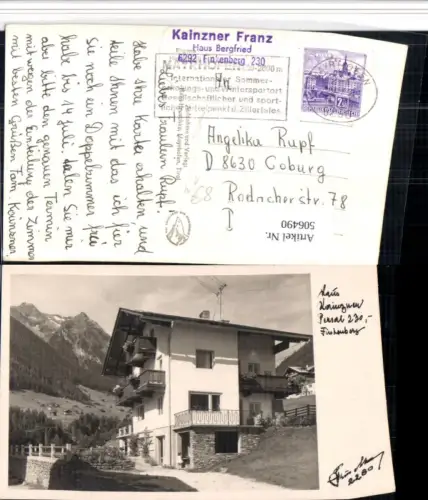 Kainzner Franz
Haus Bergfried
6292 Finkenberg 230
MAYRHOFEN
Internationaler Sommer-
Erholungs- und Wintersportort
gesellschaftlicher und sport-
licher Treffpunkt d. Zillertales
Liebes Fräulein Rupf!
Habe Ihre Karte erhalten und
teile Ihnen mit das ich für
Sie noch ein Doppelzimmer frei
habe bis 14 Juli. teilen Sie mir
aber bitte den genauen Termin
mit wegen der Einteilung der Zimmer
mit besten Grüßen Fam. Kainzner.
Angelika Rupf
D 8630 Coburg
Rodacherstr. 78
D
Artikel Nr.
506490
Haus
Kainzner
Penzal 230,-
Finkenberg
2280